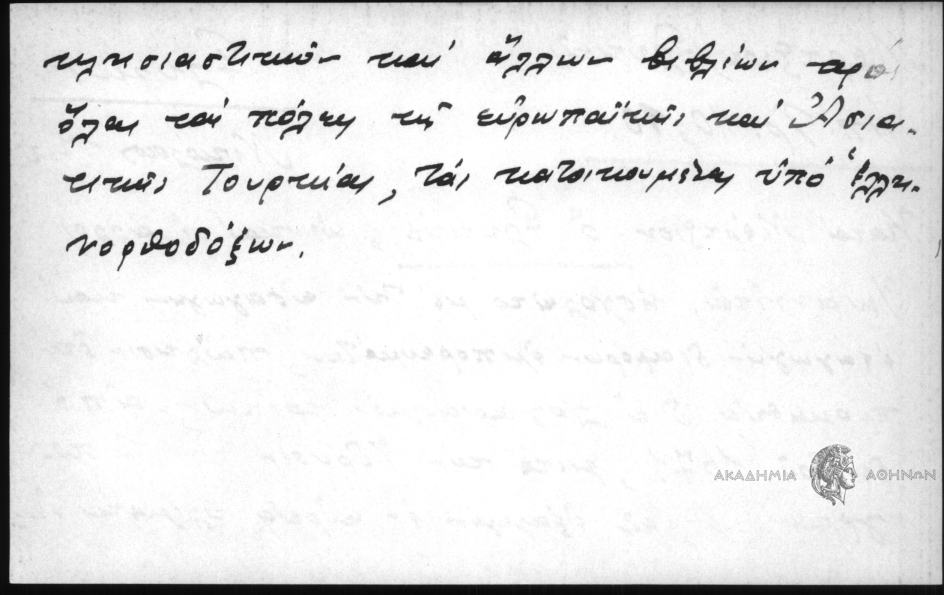 κλησιαστικῶν καὶ ἄλλων βιβλίων πρὸς
ὅλας τὰς πόλεις τῆς εὐρωπαϊκῆς καὶ Ἀσια-
τικῆς Τουρκίας, τὰς κατοικουμένας ὑπὸ Ἑλλη-
νορθοδόξων.
ΑΚΑΔΗΜΙΑ ΑΘΗΝΩΝ